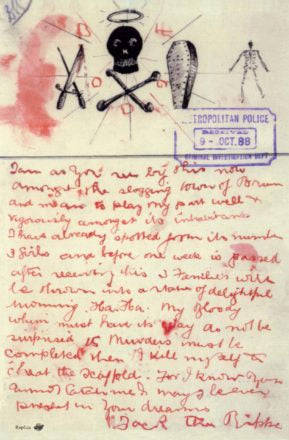 METROPOLITAN POLICE
RECEIVED
9 - OCT. 88
CRIMINAL INVESTIGATION DEPT
I am as you see by this note
amongst the slogging town of Brum
and mean to play my part well &
vigorously amongst its inhabitants
I have already spotted from its number
3 girls and before one week is passed
after receiving this 3 Families will
be thrown into a state of delightful
mourning. Ha. Ha. My Bloody
whim must have its way do not be
surprised 15 Murders must be
completed then I kill myself to
cheat the scaffold. For I know you
cannot catch me & may I be even
present in your dreams
Jack the Ripper
Replica